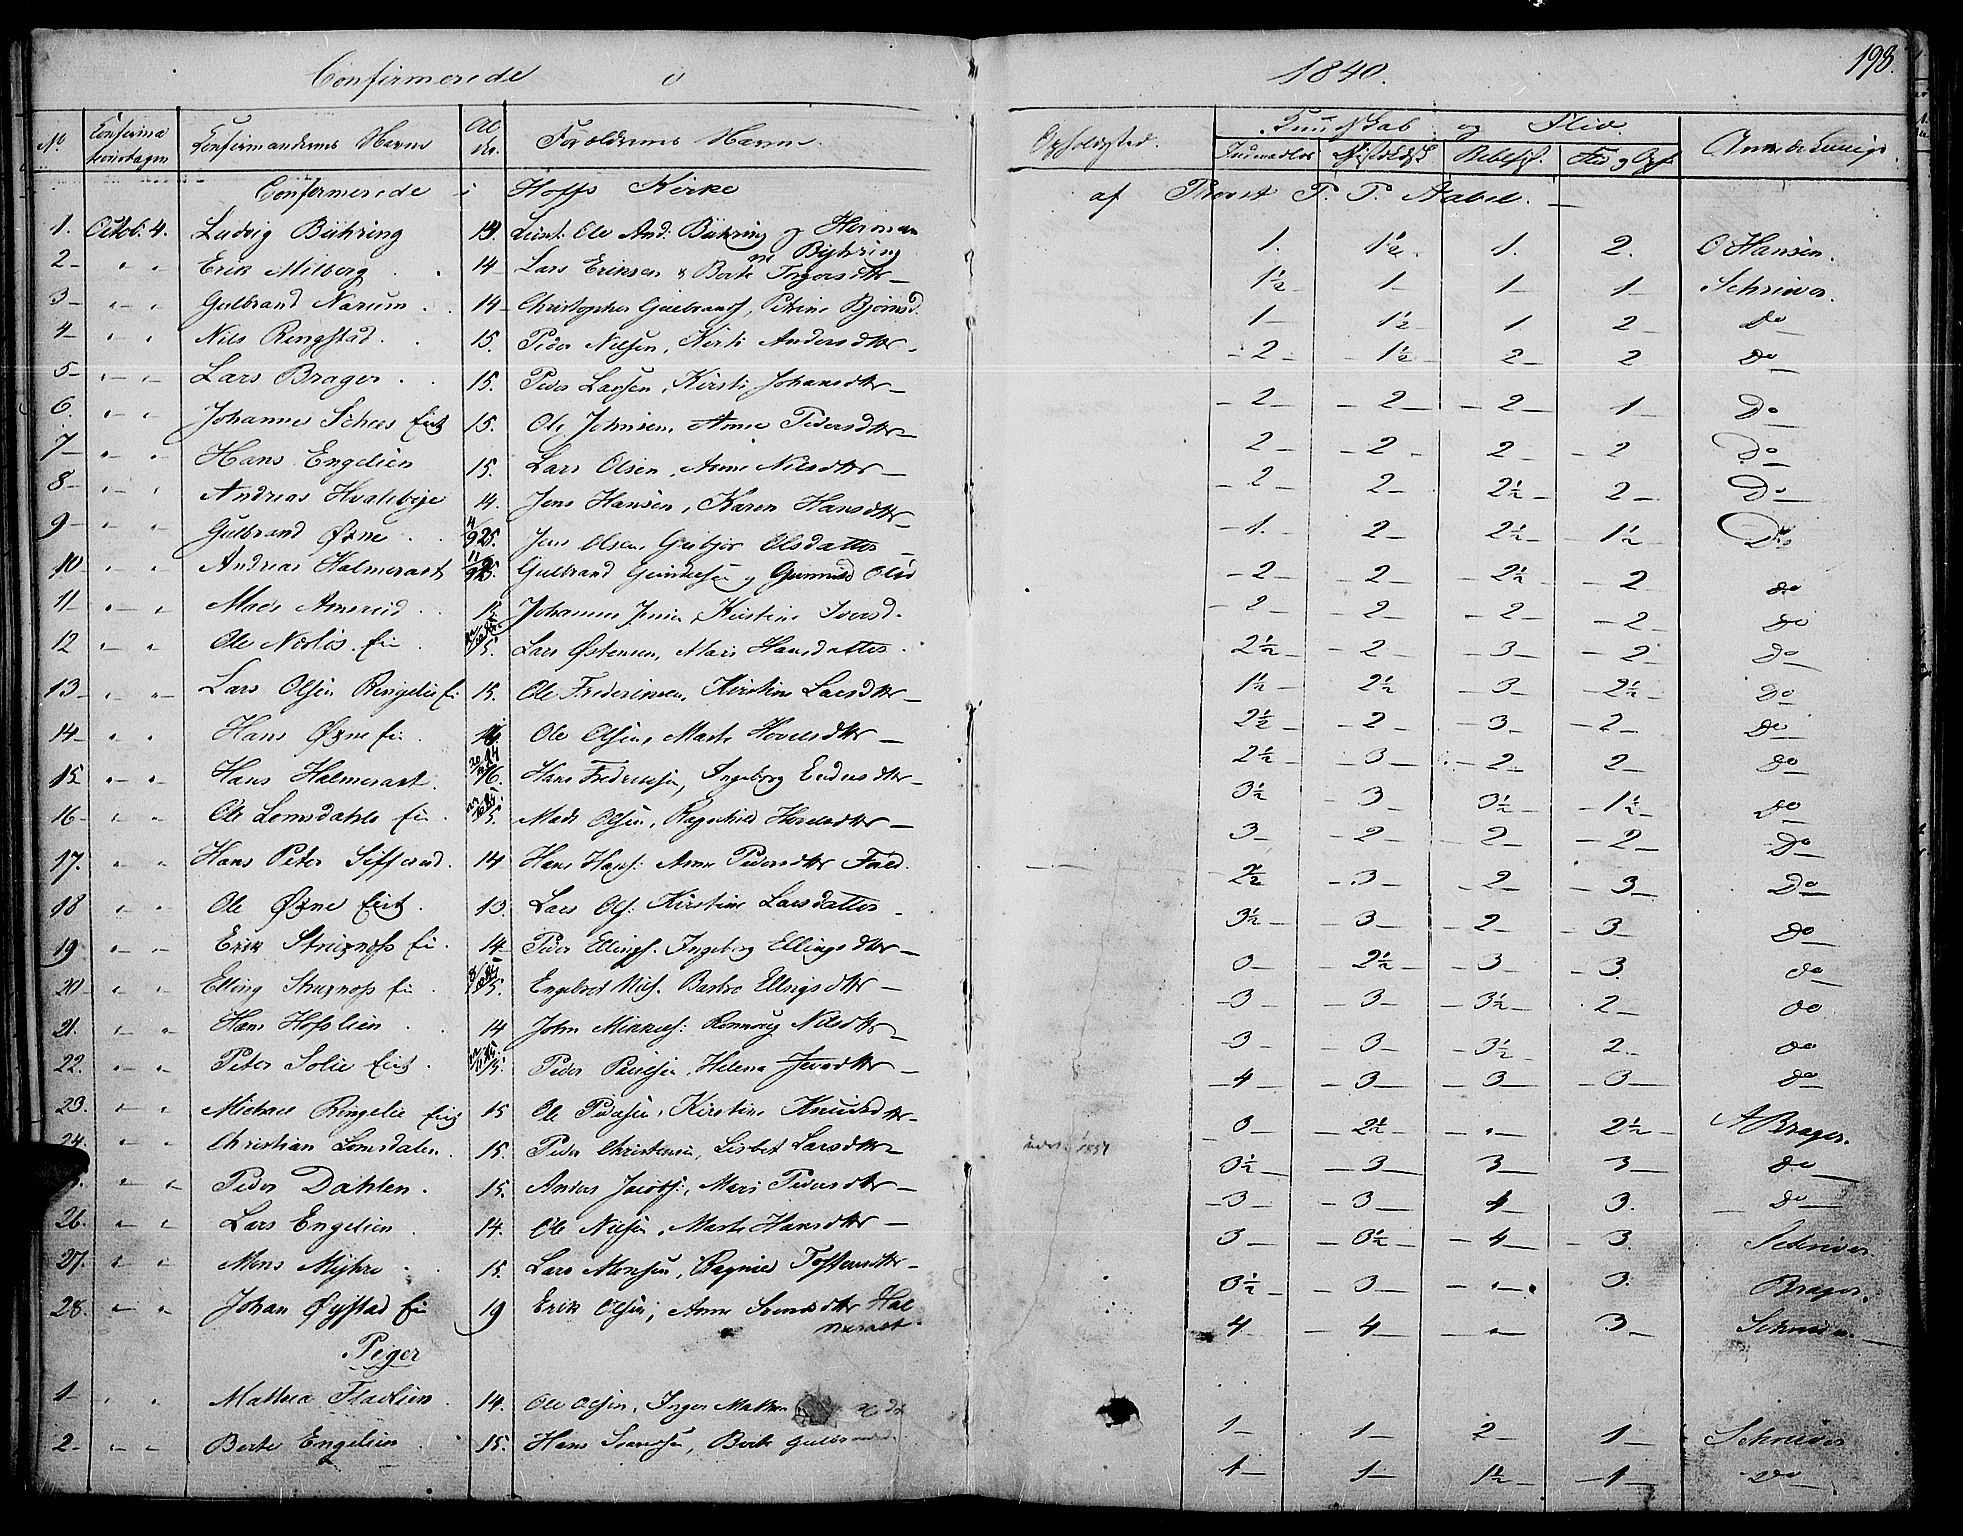 Confirmerede i 1840. 198.
No Confirma tionsdagen Confirmandernes Navne Al der. Forældrenes Navne. Opholdssted. Kundskab og Flid. Anmærkninger.
Confirmerede i Hoffs Kirke af Provst P. P. Aabel.
1. Octob. 4. Ludvig Bühring 19. Lieut. Ole And. Bühring og Herman Bühring 1. 1½. 1. 2. O Hansen.
2 " " Erik Milberg 14 Lars Eriksen & Berte Torgersdtr 1½ 1 1 1 Schriver.
3 " " Gulbrand Narum 14 Christopher Gulbrands, Petrine Bjørnsd. 1 1½ 1 2 Do
4 " " Nils Ringstad. 15. Peder Nilsen, Kirsti Andersdtr 2 1½ 2 2 Do
5 " " Lars Brager 15. Peder Larsen, Kirsti Johansdtr 2 2 2 1 Do
6. " " Johannes Schees Eie 15. Ole Johnsen, Anne Pedersdtr 2 2 2 2 Do
7 " " Hans Engelien 15. Lars Olsen, Anne Nilsdtr 2 2 2½ 2 Do
8 " " Andreas Hvaleby 14. Jens Hansen, Karen Hansdtr 1. 2 2½ 1½ Do
9 " " Gulbrand Øxne 4/9 25. Jens Olsen Gubjør Olsdatter 2 2 2½ 2 do
10 " " Andreas Halmerast 11/9 25. Gulbrand Gundersen og Gunnild Olsd 2 2 2 2 do
11 " " Mads Amerud 15 Johannes Jensen, Kirstine Iversd. 2½ 2 3 2 do
12 " " Ole Nøtlös Ei 15. Lars Østensen, Mari Hansdatter 1½ 2½ 3 2½ Do
13 " " Lars Olsen Ringelie Ei 15. Ole Fredriksen, Kirstine Larsdtr 2½ 2 3 2 Do
14 " " Hans Øxne Ei 14 Ole Olsen, Marte Hovelsdtr 2½ 3 2 2 do
15 " " Hans Halmerast. 16. Hans Fredriksen, Ingeborg Endersdtr 3½ 3 3½ 1½ Do
16 " " Ole Lomsdahls Ei 15. Mads Olsen, Ragnhild Hovelsdtr 3 2 2 2 Do
17. " " Hans Peter Sifferud. 14 Hans Hans: Anne Pedersdtr Fald. 2½ 3 2 3 Do
18 " " Ole Øxne Eie. 13. Lars Ols: Kirstine Larsdatter 3½ 3 2 3 Do
19 " " Erik Struxnæss Ei. 14 Peder Ellings. Ingeborg Ellingsdtr 3 2½ 3 3 do
20 " " Elling Struxnæss Ei 15. Engebret Nils. Barbro Ellingsdtr 3 3 3½ 2 do
21. " " Hans Hofslien 14 John Mikkels: Rønnoug Nilsdtr 3 3 3½ 2 do
22. " " Peter Solie Eie 15. Peder Paulsen, Helena Iversdtr 4 3 3 3 do
23. " " Michael Ringelie Eie 15 Ole Pedersen, Kirstine Knudsdtr 3 2½ " 2½ A Brager.
24. " " Christian Lomsdalen. 15. Peder Christensen, Lisbet Larsdtr 1857 3½ 3 3 3 do
" " Peder Dahlen. 15. Anders Jacobs:, Mari Pedersdtr 3 3 4 3. do
26. " " Lars Engelien 14. Ole Nilsen, Marte Hansdtr 3 3½ 4 3. Schriver
27. " " Mons Myhre 15. Lars Monsen, Ragnild Tostensdtr 3½ 3 " 3. Brager.
28. " " Johan Øystad Ei 19 Erik Olsen, Anne Svensdtr Hal merast. 4 4 " 3 Schriver
Piger
1 " " Mathea Fladlien 14. Ole Olsen, Inger Mathea 1 1 2 1 Schriver
2 " " Berte Engelien 15. Hans Svendsen, Berte Gulbrandsd. 1 1 1½ 1 Do